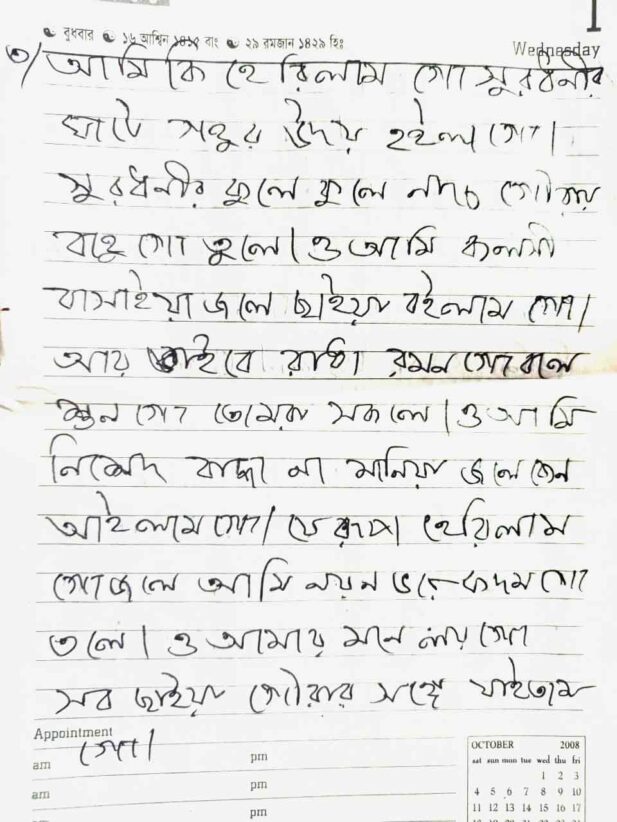 বুধবার ১৬ আশ্বিন ১৪১৫ বাং ২৯ রমজান ১৪২৯ হিঃ
Wednesday
৩/ আমি কি হেরিলাম গো সুরধনীর
ঘাটে সন্তুর উদয় হইল গো।
সুরধনীর কুলে কুলে নাচে গৌরায়
বাহু গো তুলে। ও আমি কলসী
বাসাইয়া জলে ছাইয়া রইলাম গো।
আয় ভাইবে রাধা রমন গো বলে
শুন গো তোমরা সকলে। ও আমি
নিষেদ বাদ্দা না মানিয়া জলে কেন
আইলাম গো। যে রূপ হেরিলাম
গো জলে আমি নয়ন ভরে কদম গো
তলে। ও আমায় মনে লয় গো
সব ছাইয়া গৌরার সঙ্গে যাইতাম
গো।
Appointment
am pm
am pm
pm
OCTOBER 2008
sat sun mon tue wed thu fri
1 2 3
4 5 6 7 8 9 10
11 12 13 14 15 16 17